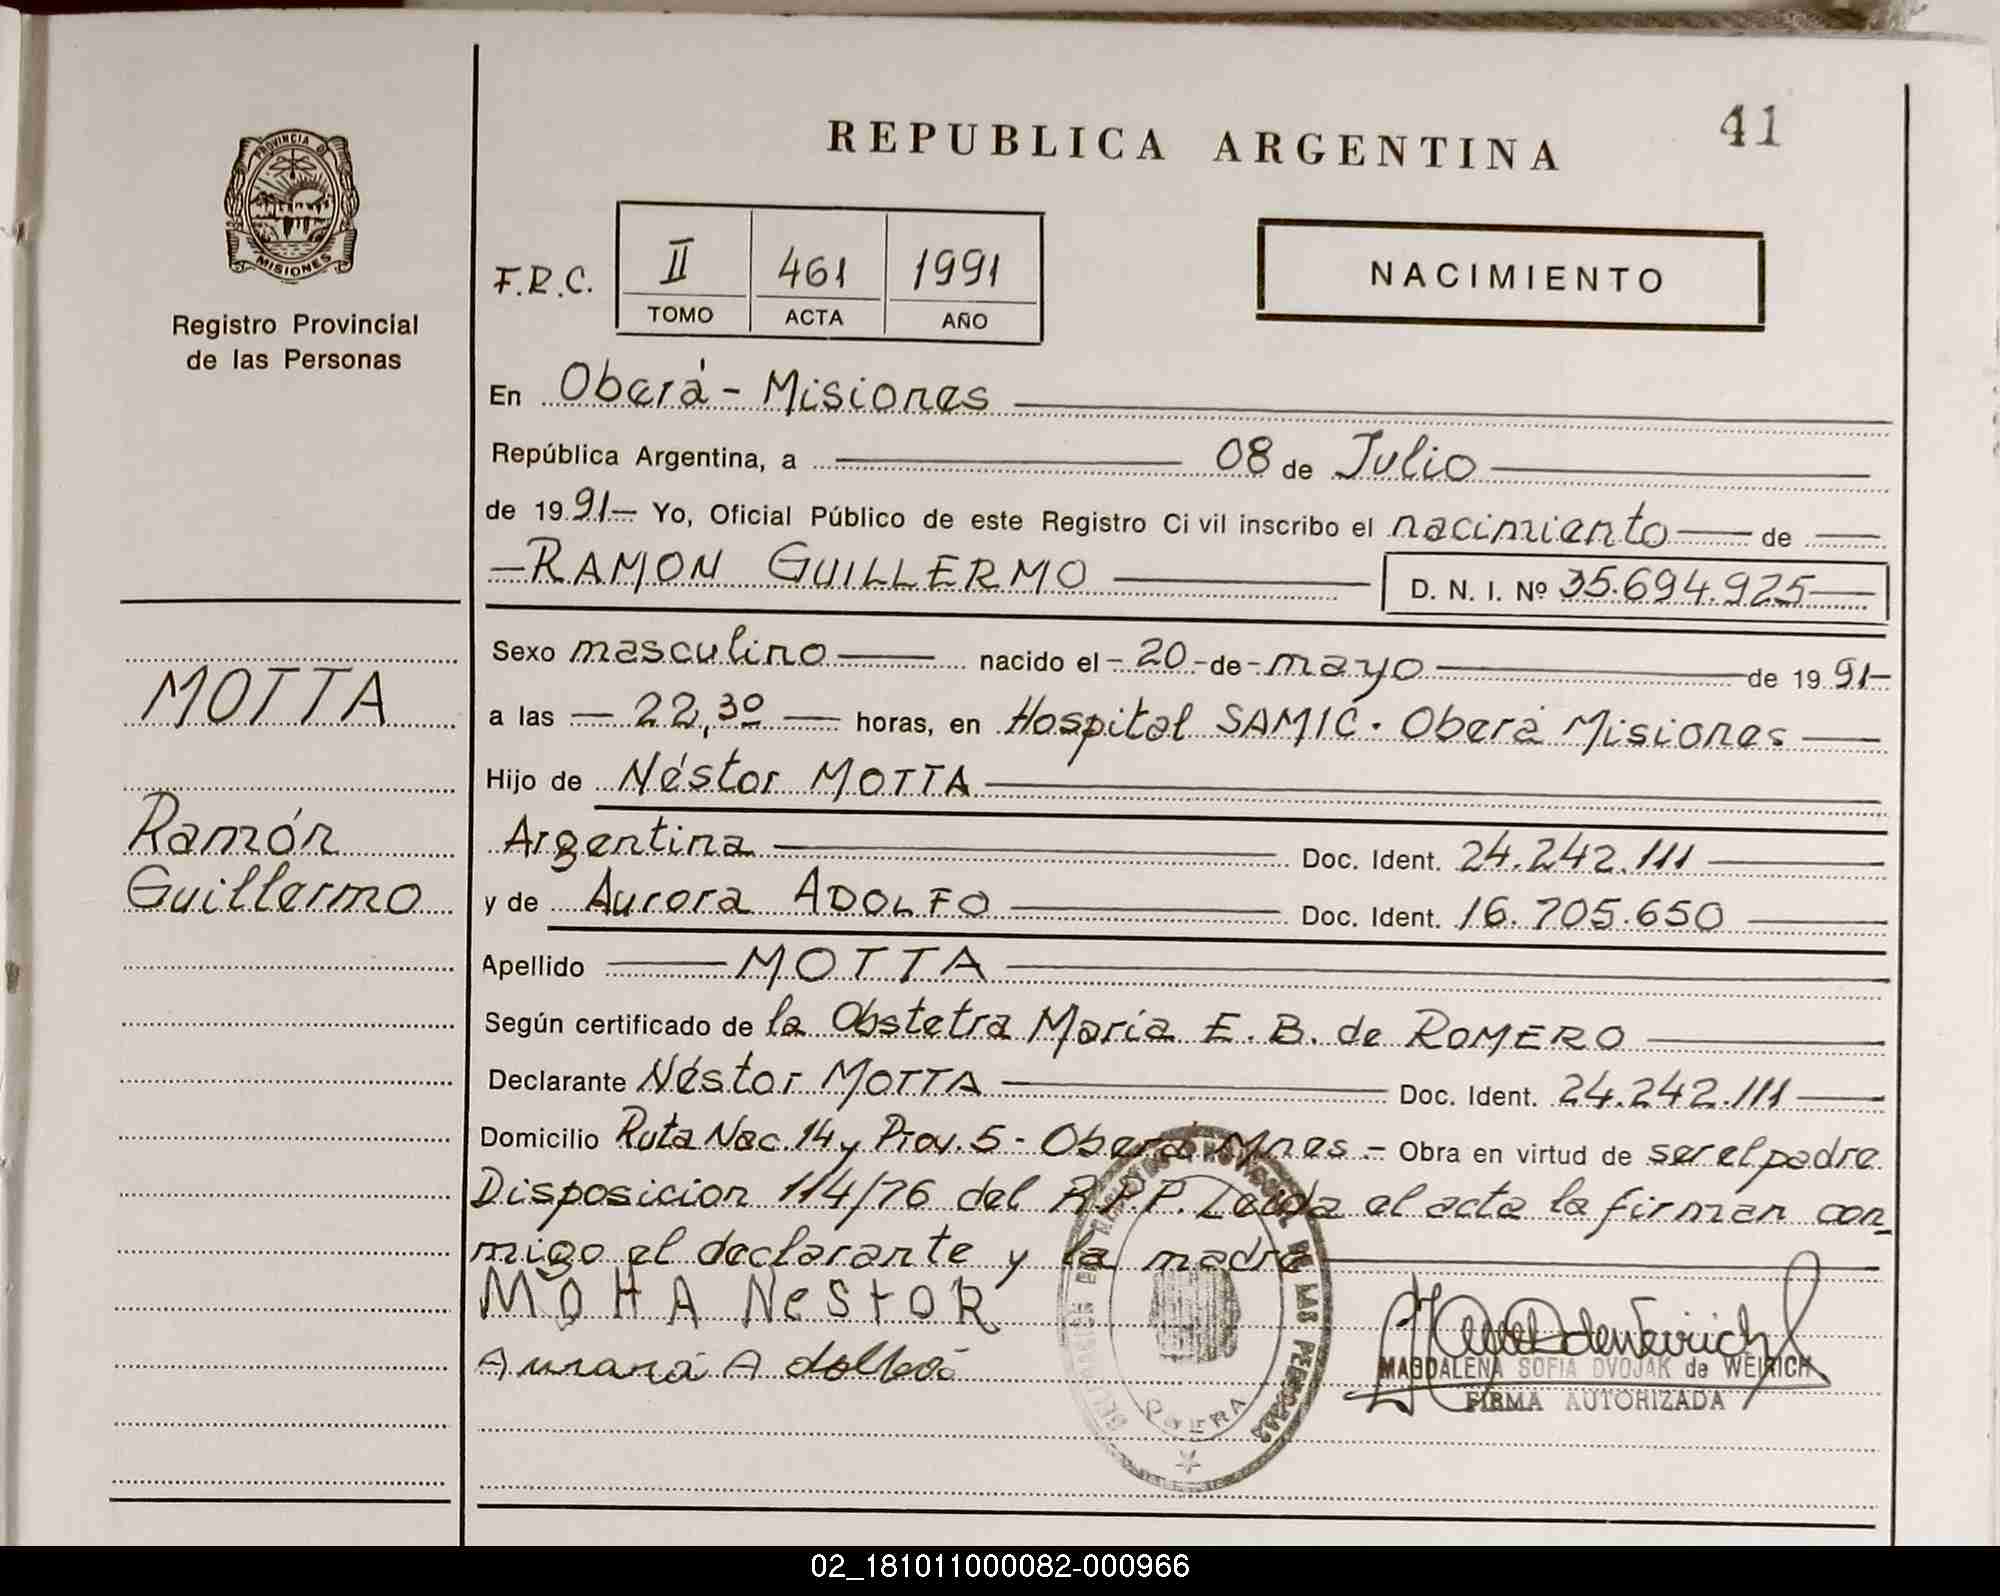 41
REPUBLICA ARGENTINA
PROVINCIA DE
MISIONES
Registro Provincial
de las Personas
F.R.C.
II 461 1991
TOMO ACTA AÑO
NACIMIENTO
En Oberá - Misiones
República Argentina, a 08 de Julio
de 1991 Yo, Oficial Público de este Registro Civil inscribo el nacimiento de
RAMON GUILLERMO D. N. I. Nº 35.694.925
Sexo masculino nacido el 20 de mayo de 1991
a las 22,30 horas, en Hospital SAMIC. Oberá Misiones
Hijo de Néstor MOTTA
Argentina Doc. Ident. 24.242.111
y de Aurora ADOLFO Doc. Ident. 16.705.650
Apellido MOTTA
Según certificado de la Obstetra María E. B. de ROMERO
Declarante Néstor MOTTA Doc. Ident. 24.242.111
Domicilio Ruta Nac. 14 y Prov. 5 - Oberá Mnes - Obra en virtud de ser el padre
Disposicion 114/76 del R.P.P. Leida el acta la firman con
migo el declarante y la madre
MOTTA
Ramón
Guillermo
MOHA NeStOR
MAGDALENA SOFIA DVOJAK de WEIRICH
FIRMA AUTORIZADA
02_181011000082-000966